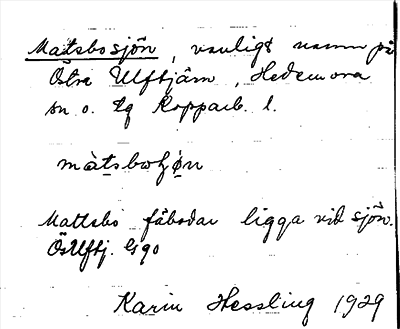 Matsbosjön, vanligt namn på
Östra Ulftjärn, Hedemora
sn o. tg Kopparb. l.
màtsboʃø̱n
Mattsbo fäbodar ligga vid sjön.
Karin Hessling 1929